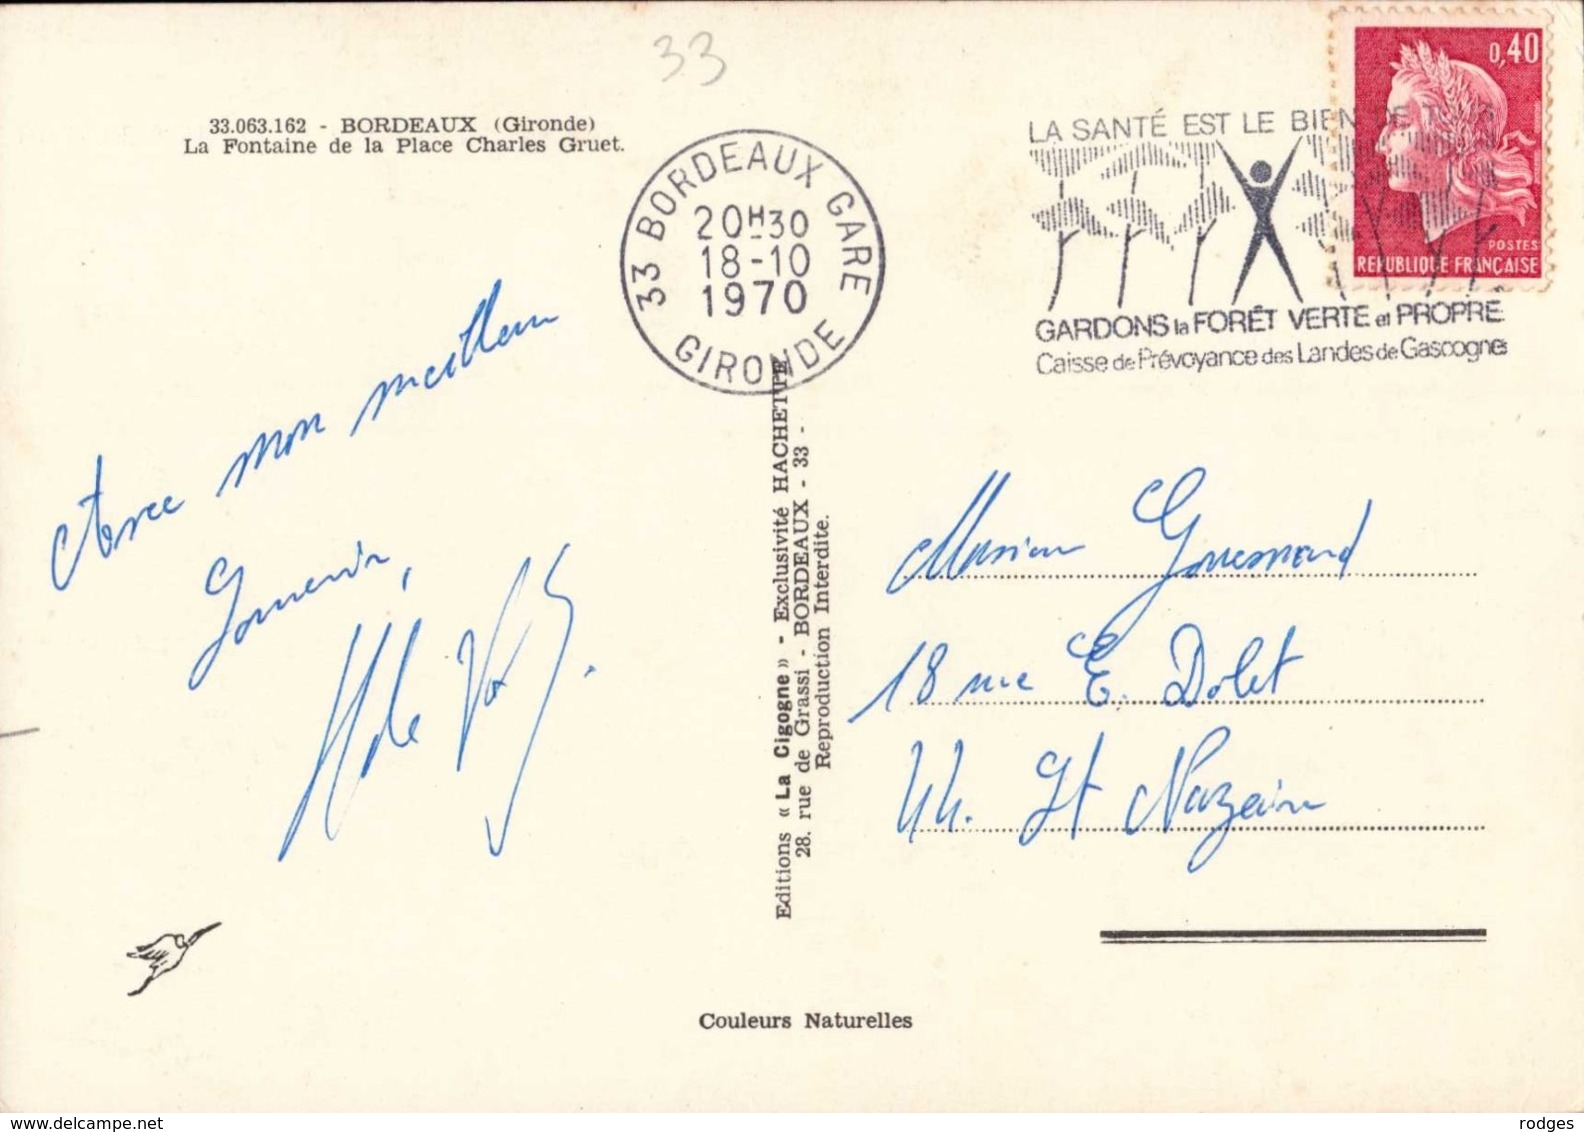 33
33.063.162 - BORDEAUX (Gironde)
La Fontaine de la Place Charles Gruet.
33 BORDEAUX GARE
20H30
18-10
1970
GIRONDE
LA SANTÉ EST LE BIEN DE TOUS
GARDONS la FORÊT VERTE et PROPRE
Caisse de Prévoyance des Landes de Gascogne
0,40
POSTES
REPUBLIQUE FRANÇAISE
Avec mon meilleur
Souvenir,
Editions « La Cigogne » - Exclusivité HACHETTE
28. rue de Grassi - BORDEAUX - 33 -
Reproduction Interdite.
Monsieur
18 rue E. Dolet
44. St Nazaire
Couleurs Naturelles
delcampe.net
rodges